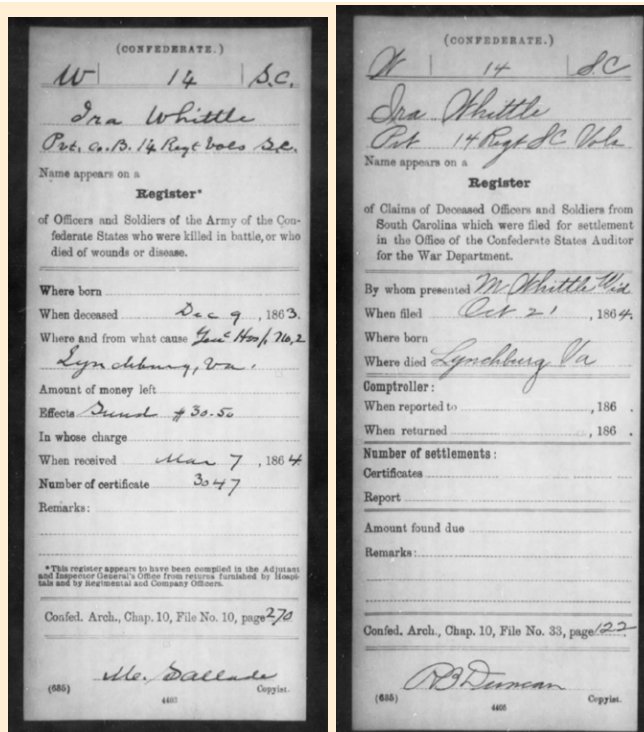 (CONFEDERATE.)
W | 14 | S.C.
Ira Whittle
Pvt. Co. B. 14 Regt Vols S.C.
Name appears on a
Register*
of Officers and Soldiers of the Army of the Con-
federate States who were killed in battle, or who
died of wounds or disease.
Where born
When deceased Dec 9, 1863.
Where and from what cause Gen Hosp. No, 2
Lynchburg, Va.
Amount of money left
Effects Sund $30.50
In whose charge
When received Mar 7, 1864.
Number of certificate 3047
Remarks:
*This register appears to have been compiled in the Adjutant
and Inspector General's Office from returns furnished by Hospi-
tals and by Regimental and Company Officers.
Confed. Arch., Chap. 10, File No. 10, page 270
Mc. Sallade
(635) Copyist.
(CONFEDERATE.)
W | 14 | S.C
Ira Whittle
Pvt 14 Regt SC Vols
Name appears on a
Register
of Claims of Deceased Officers and Soldiers from
South Carolina which were filed for settlement
in the Office of the Confederate States Auditor
for the War Department.
By whom presented M Whittle Wid
When filed Oct 21, 1864.
Where born
Where died Lynchburg Va
Comptroller:
When reported to , 186 .
When returned , 186 .
Number of settlements:
Certificates
Report
Amount found due
Remarks:
Confed. Arch., Chap. 10, File No. 33, page 122
RB Duncan
(635) Copyist.